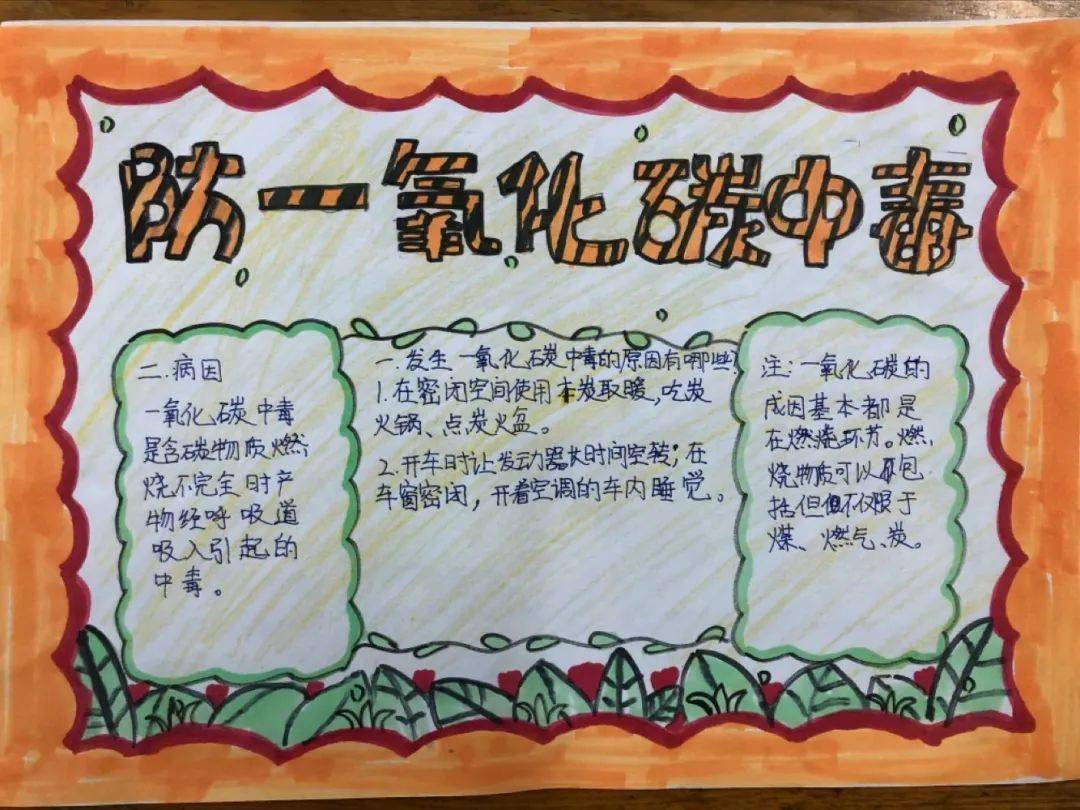 防一氧化碳中毒
二.病因
一氧化碳中毒
是含碳物质燃
烧不完全时产
物经呼吸道
吸入引起的
中毒。
一.发生一氧化碳中毒的原因有哪些?
1.在密闭空间使用木炭取暖,吃炭
火锅、点炭火盆。
2.开车时让发动器长时间空转;在
车窗密闭,开着空调的车内睡觉。
注:一氧化碳的
成因基本都是
在燃烧环节。燃
烧物质可以包
括但不仅限于
煤、燃气、炭。